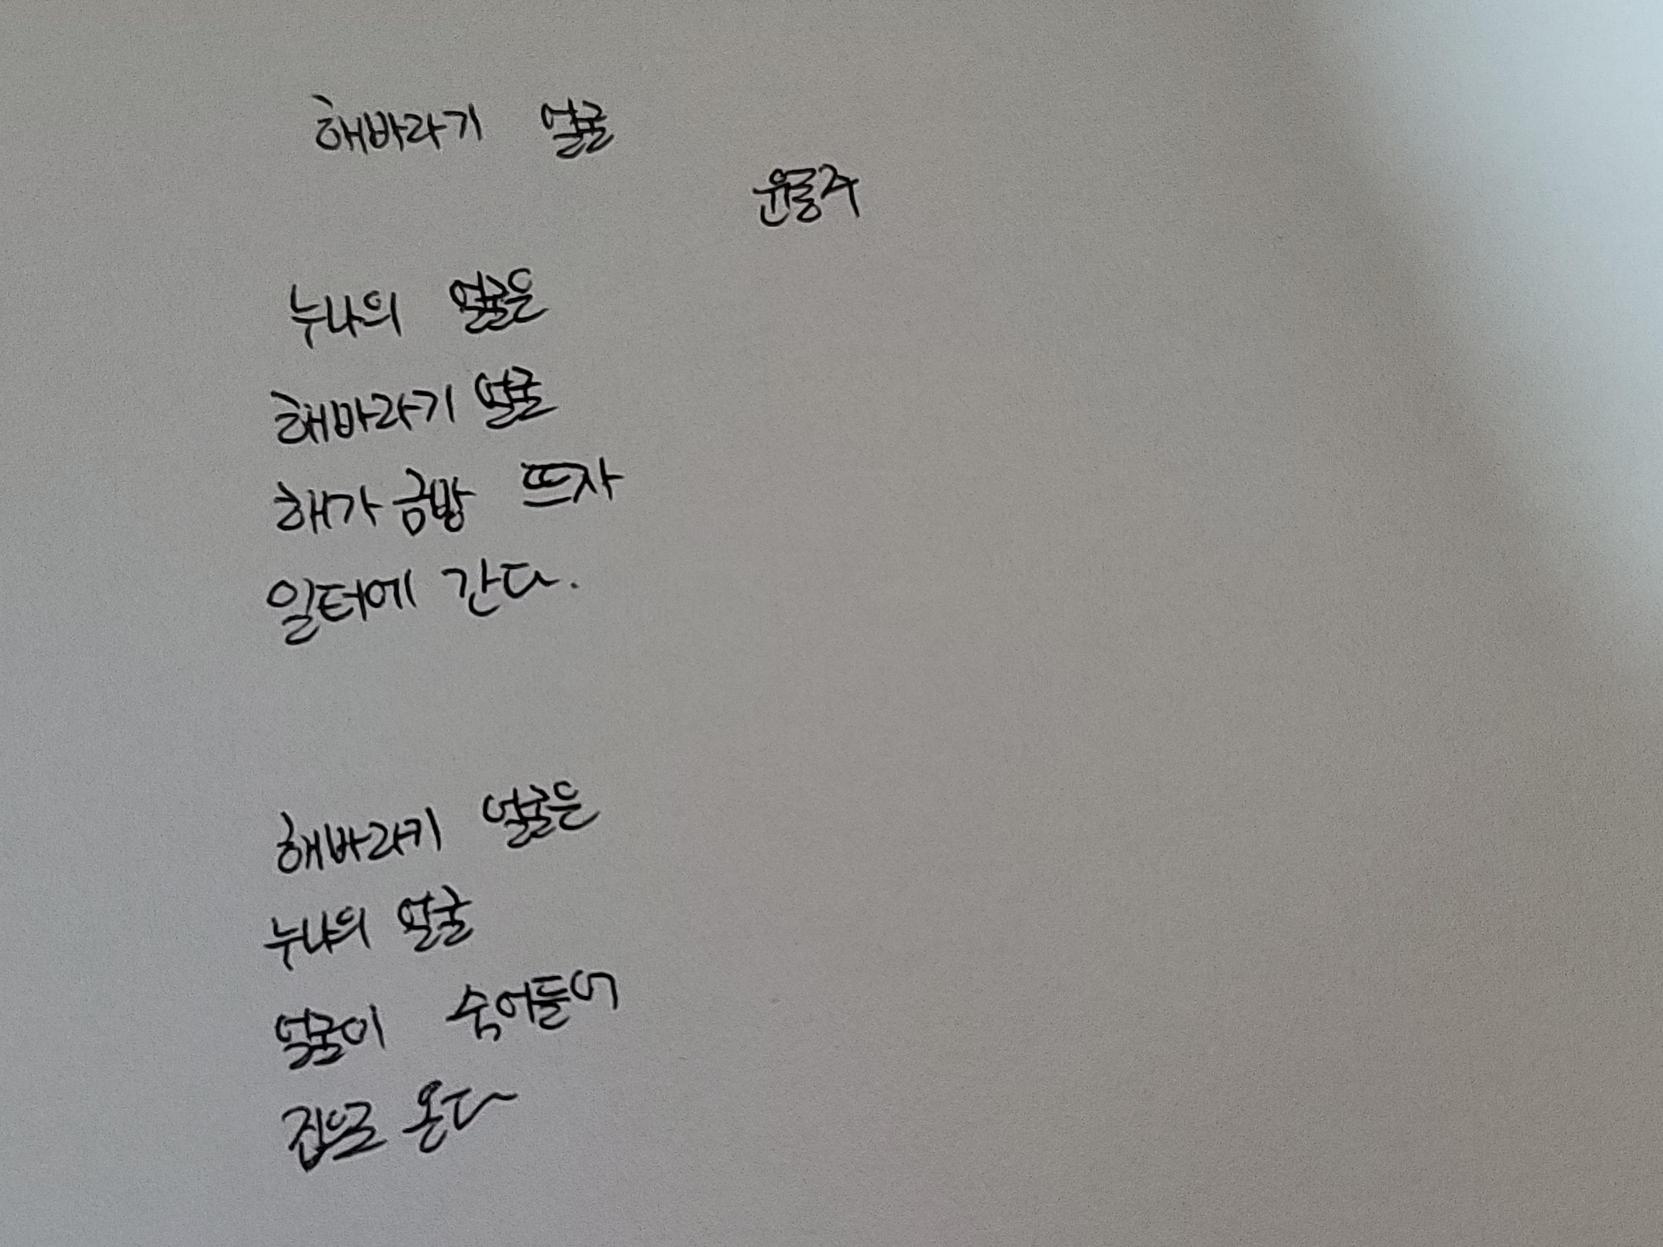 해바라기 얼굴
윤동주
누나의 얼굴은
해바라기 얼굴
해가 금방 뜨자
일터에 간다.
해바라기 얼굴은
누나의 얼굴
얼굴이 숙어들어
집으로 온다